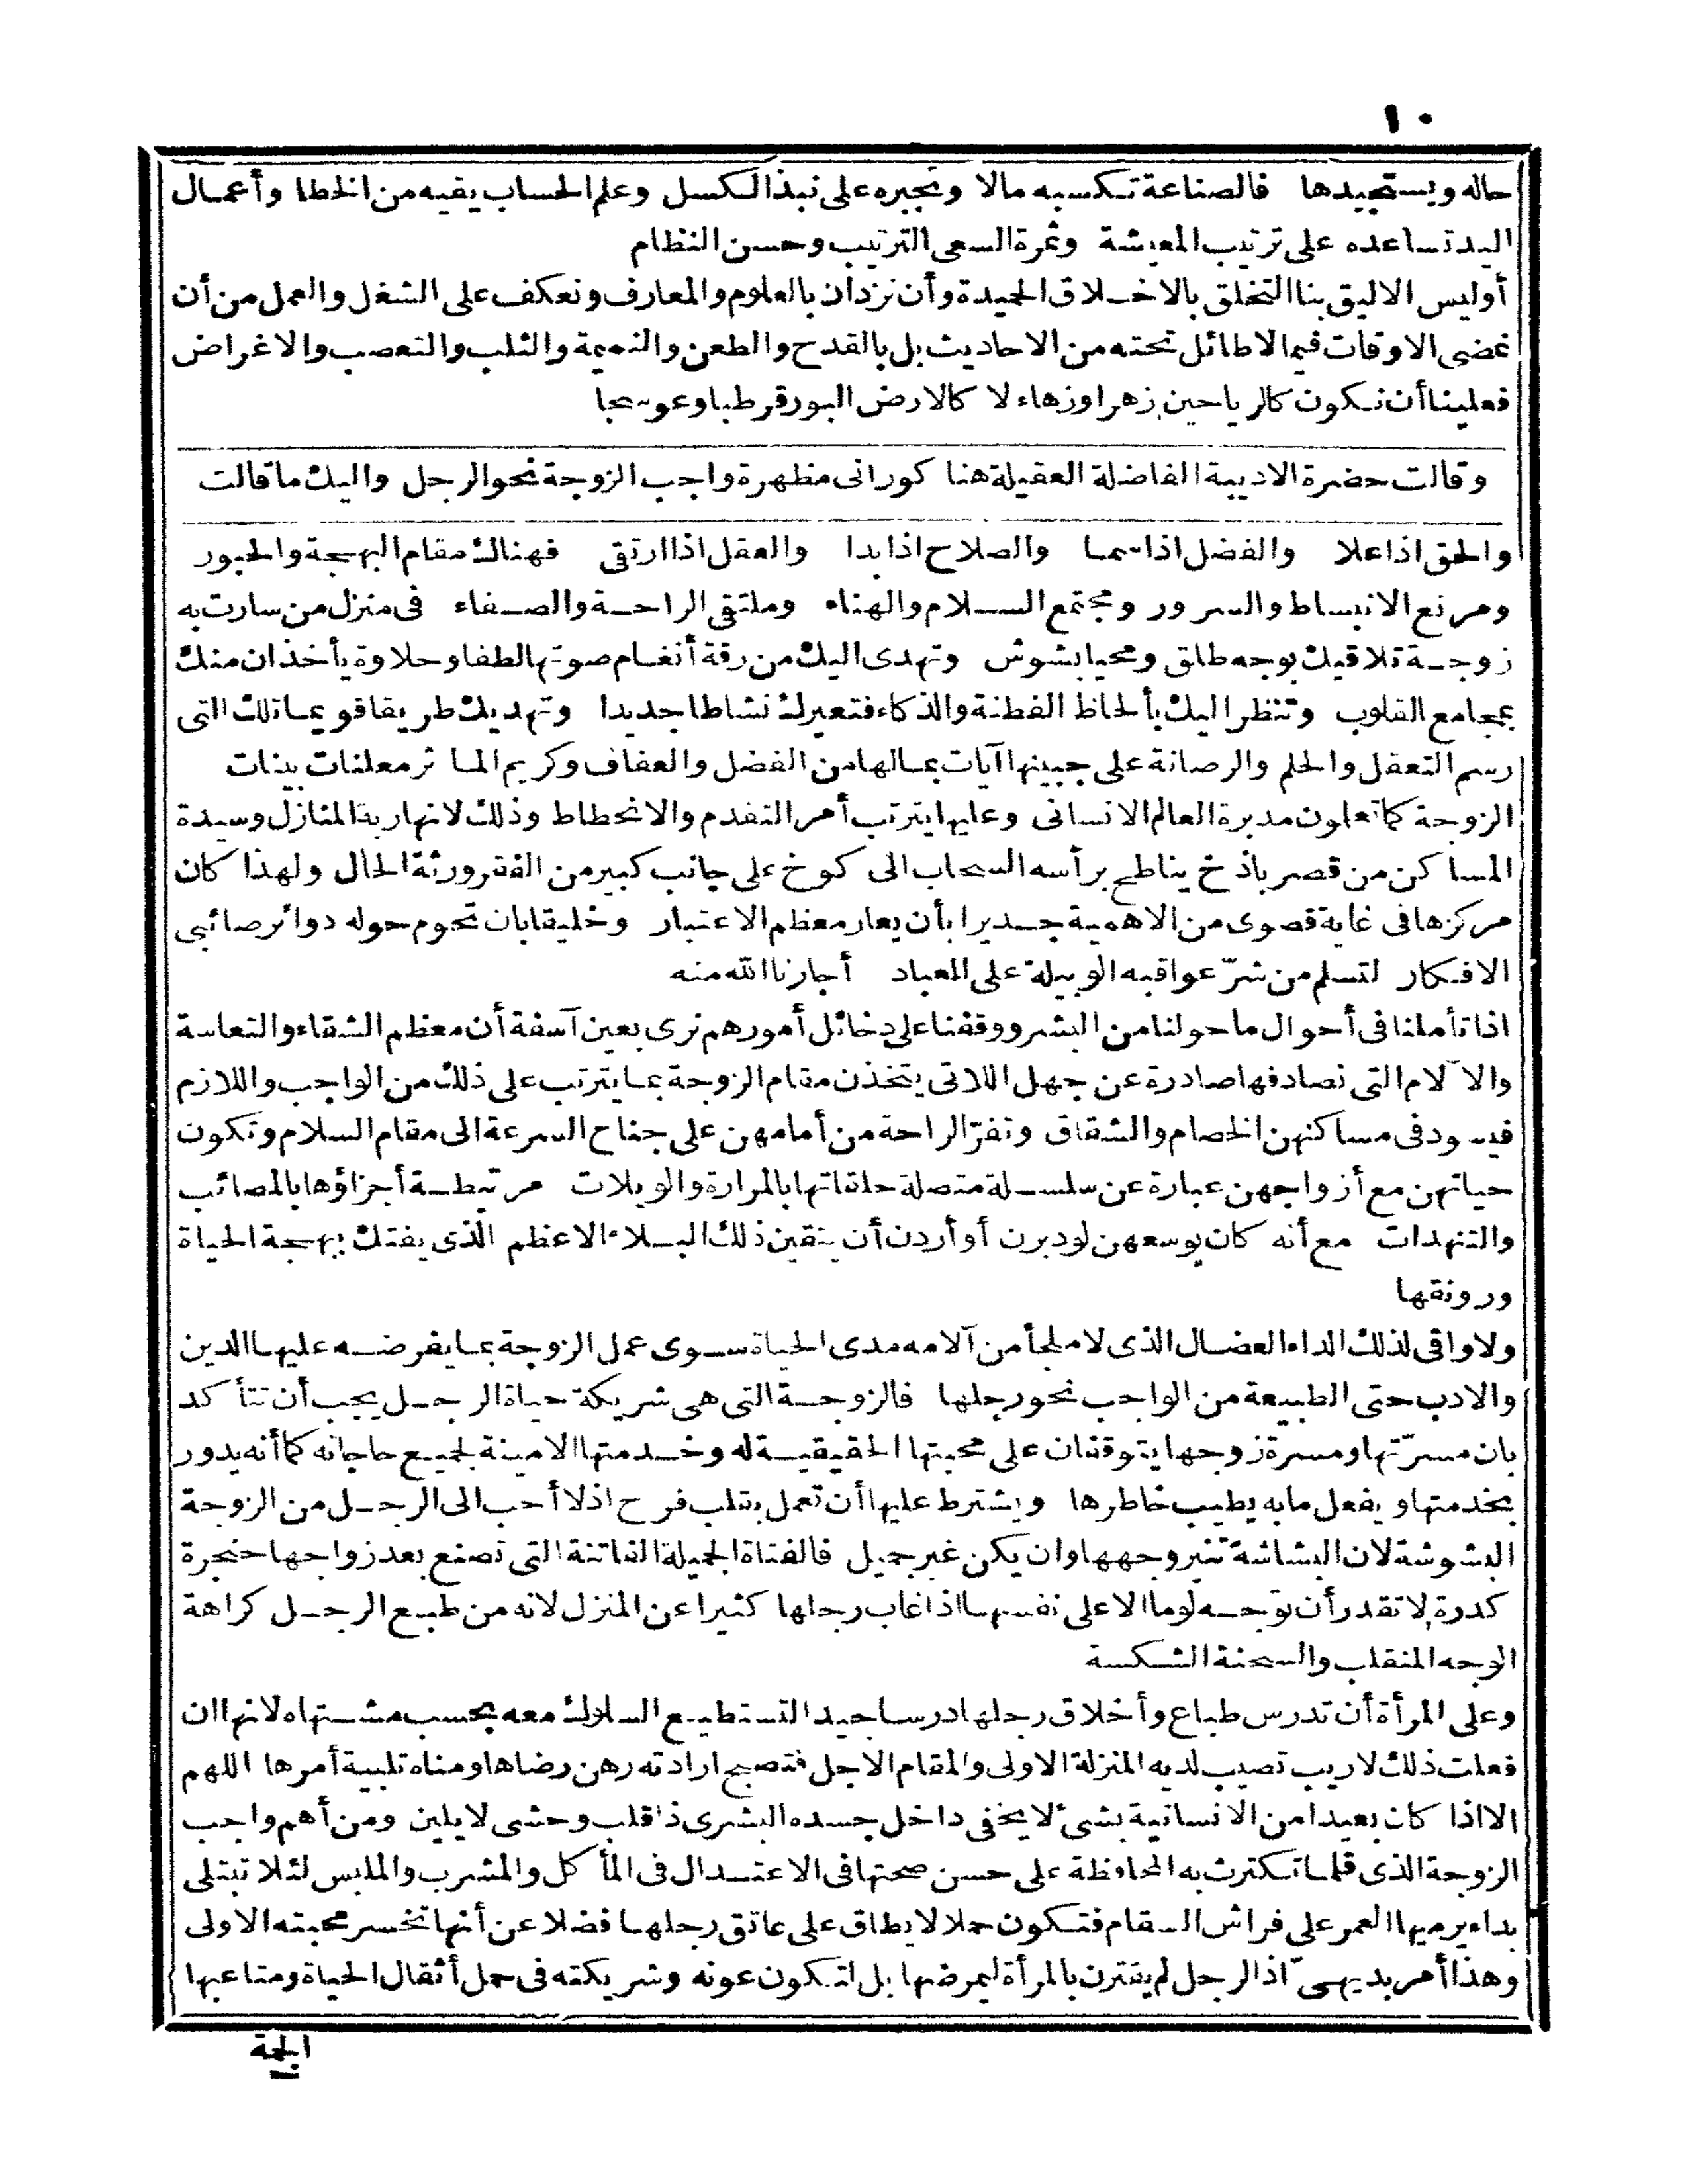 ١٠
حاله ويستجيدها فالصناعة تكسبه مالا وتجبره على نبذ الكسل وعلم الحساب يقيه من الخطا وأعمال
اليد تساعده على ترتيب المعيشة وثمرة السعى الترتيب وحسن النظام
أوليس الاليق بنا التخلق بالاخلاق الحميدة وأن نزدان بالعلوم والمعارف ونعكف على الشغل والعمل من أن
نمضى الاوقات فيما لاطائل تحته من الاحاديث بل بالقدح والطعن والنميمة والثلب والتعصب والاغراض
فعلينا أن نكون كالرياحين زهرا وزهاء لا كالارض البور قرطبا وعوسجا
وقالت حضرة الاديبة الفاضلة العقيلة هنا كورانى مظهرة واجب الزوجة نحو الرجل واليك ما قالت
والحق اذا علا والفضل اذا سما والصلاح اذا بدا والعقل اذا ارتقى فهناك مقام البهجة والحبور
ومرتع الانبساط والسرور ومجتمع السلام والهناء وملتقى الراحة والصفاء فى منزل من سارت به
زوجة تلاقيك بوجه طلق ومحيا بشوش وتهدى اليك من رقة أنغام صوتها لطفا وحلاوة يأخذان منك
بمجامع القلوب وتنظر اليك بألحاظ الفطنة والذكاء فتعيرك نشاطا جديدا وتهديك طريقا قويما تلك التى
رسم التعقل والحلم والرصانة على جبينها آيات بمالها من الفضل والعفاف وكريم الماثر معلنات بينات
الزوجة كما تعلون مدبرة العالم الانسانى وعليها يترتب أمر التقدم والانحطاط وذلك لانها ربة المنازل وسيدة
المساكن من قصر باذخ يناطح برأسه السحاب الى كوخ على جانب كبير من الفقر ورثة الحال ولهذا كان
مركزها فى غاية قصوى من الاهمية جديرا بأن يعار معظم الاعتبار وخليقا بان تحوم حوله دوائر صائبى
الافكار لتسلم من شرّ عواقبه الوبيلة على العباد أجارنا الله منه
اذا تأملنا فى أحوال ما حولنا من البشر ووقفنا على دخائل أمورهم نرى بعين آسفة أن معظم الشقاء والتعاسة
والآلام التى نصادفها صادرة عن جهل اللاتى يتخذن مقام الزوجة بما يترتب على ذلك من الواجب واللازم
فيسود فى مساكنهن الخصام والشقاق وتفرّ الراحة من أمامهن على جناح السرعة الى مقام السلام وتكون
حياتهن مع أزواجهن عبارة عن سلسلة متصلة حلقاتها بالمرارة والويلات مرتبطة أجزاؤها بالمصائب
والتنهدات مع أنه كان بوسعهن لو دبرن أو أردن أن يتقين ذلك البلاء الاعظم الذى يفتك ببهجة الحياة
ورونقها
ولا واقى لذلك الداء العضال الذى لا ملجأ من آلامه مدى الحياة سوى عمل الزوجة بما يفرضه عليها الدين
والادب حتى الطبيعة من الواجب نحو رجلها فالزوجة التى هى شريكة حياة الرجل يجب أن تتأكد
بان مسرّتها ومسرة زوجها يتوقفان على محبتها الحقيقية له وخدمتها الامينة لجميع حاجاته كما أنه يدور
بخدمتها ويفعل مابه يطيب خاطرها ويشترط عليها أن تعمل بقلب فرح اذ لا أحب الى الرجل من الزوجة
البشوشة لان البشاشة تنير وجهها وان يكن غير جميل فالفتاة الجميلة الفاتنة التى تصنع بعد زواجها حنجرة
كدرة لا تقدر أن توجه لوما الا على نفسها اذا غاب رجلها كثيرا عن المنزل لانه من طبيع الرجل كراهة
الوجه المنقلب والسحنة الشكسة
وعلى المرأة أن تدرس طباع وأخلاق رجلها درسا جيدا لتستطيع السلوك معه بحسب مشتهاه لانها ان
فعلت ذلك لاريب تصيب لديه المنزلة الاولى والمقام الاجل فتصبح ارادته رهن رضاها ومناه تلبية أمرها اللهم
الا اذا كان بعيدا من الانسانية بشئ لا يخفى داخل جسده البشرى ذا قلب وحشى لا يلين ومن أهم واجب
الزوجة الذى قلما تكترث به المحافظة على حسن صحتها فى الاعتدال فى المأكل والمشرب والملبس لئلا تبتلى
بداء يرميها العمر على فراش السقام فتكون حملا لا يطاق على عاتق رجلها فضلا عن أنها تخسر محبته الاولى
وهذا أمر بديهىّ اذ الرجل لم يقترن بالمرأة ليمرضها بل لتكون عونه وشريكته فى حمل أثقال الحياة ومتاعبها
الجمة